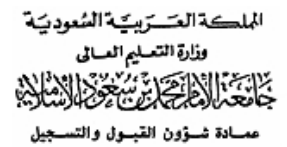 المملكة العـربيـة السعوديـة
وزارة التعليم العـالى
جامعة الإمام محمد بن سعود الإسلامية
عمـادة شـؤون القبـول والتسـجيل